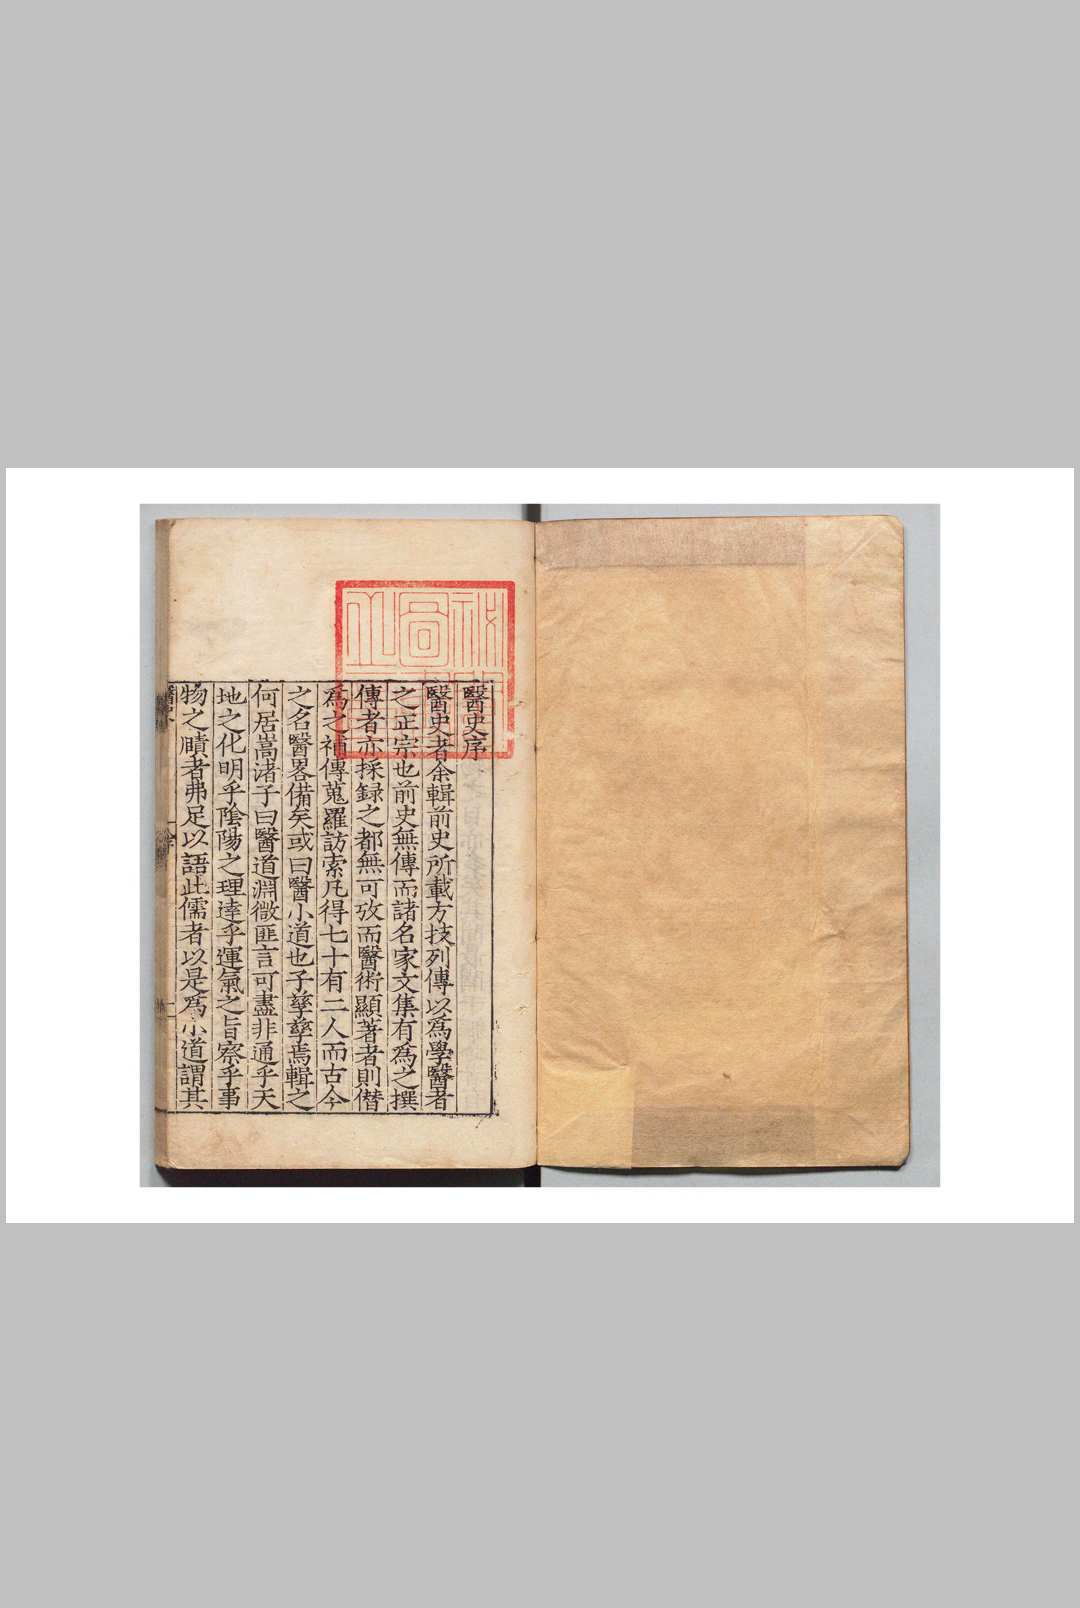 醫史序
醫史者余輯前史所載方技列傳以為學醫者
之正宗也前史無傳而諸名家文集有為之撰
傳者亦採録之都無可攷而醫術顯著者則僣
為之補傳蒐羅訪索凡得七十有二人而古今
之名醫畧備矣或曰醫小道也子孳孳焉輯之
何居嵩渚子曰醫道淵微匪言可盡非通乎天
地之化明乎陰陽之理達乎運氣之旨察乎事
物之賾者弗足以語此儒者以是為小道謂其